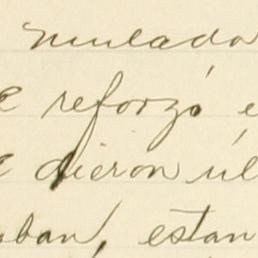 mulada
e reforzó e
e dieron úl
aban, estan